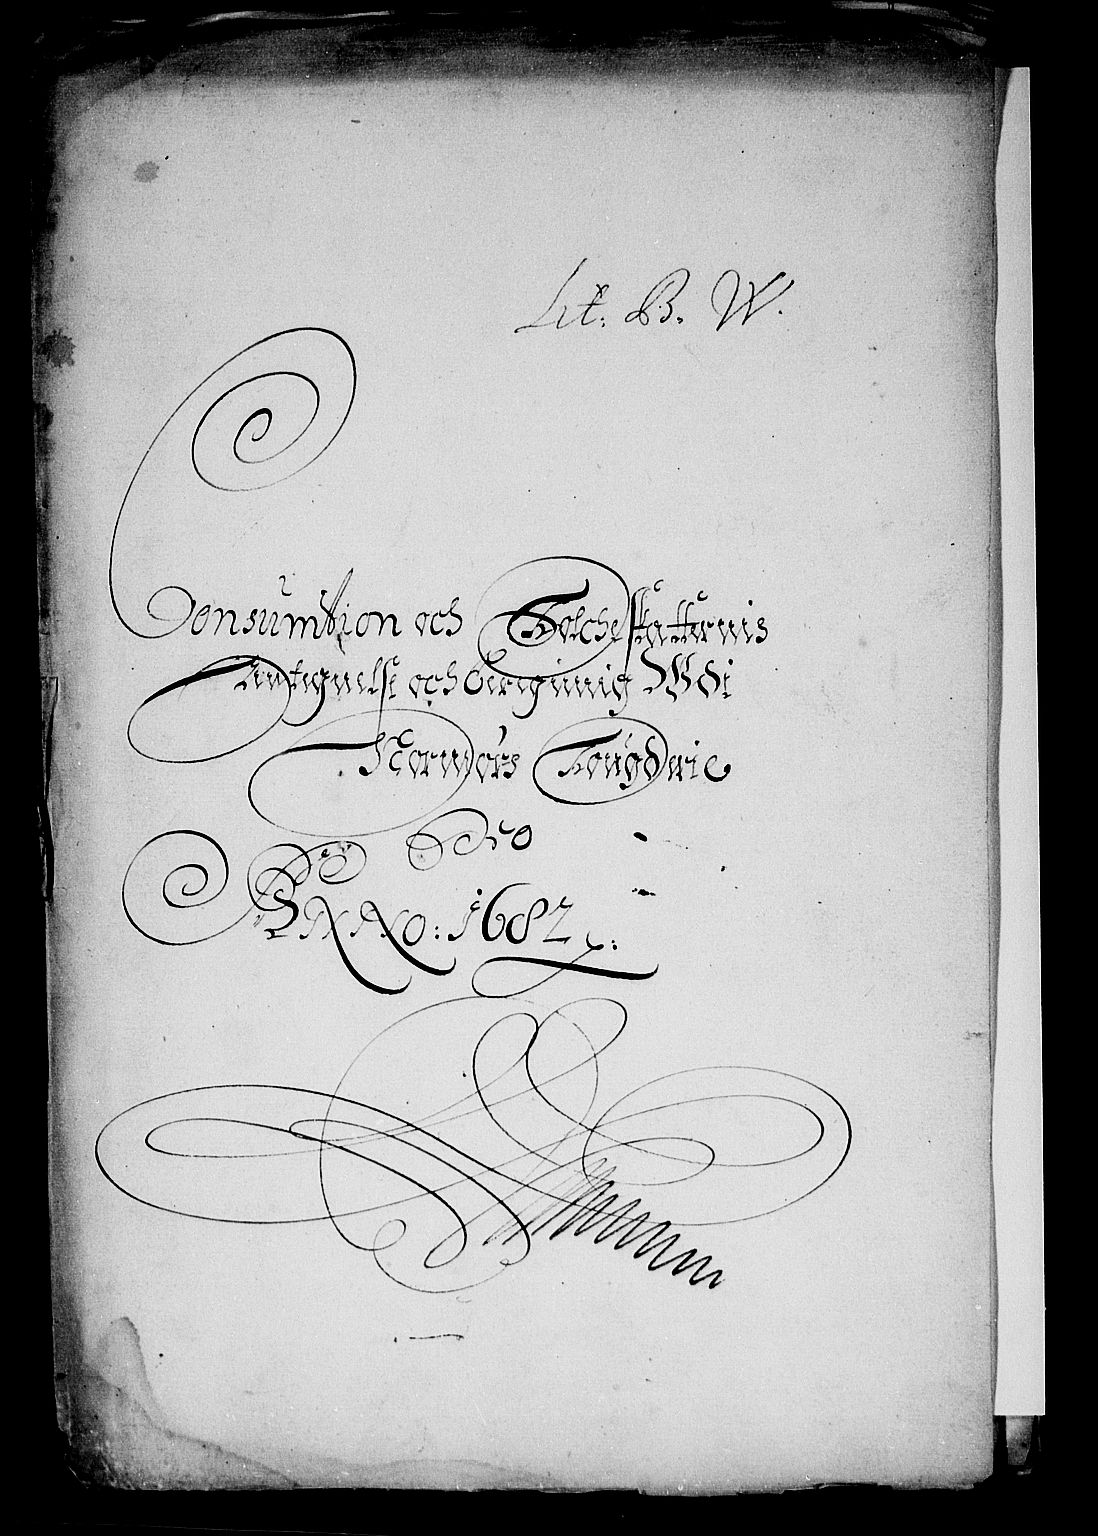 Lit. B. W.
Consumtion och Folcheskatternis
Antegnelse och beregning Wdi
Nordmørs Fougderie
Pro
Anno: 1682